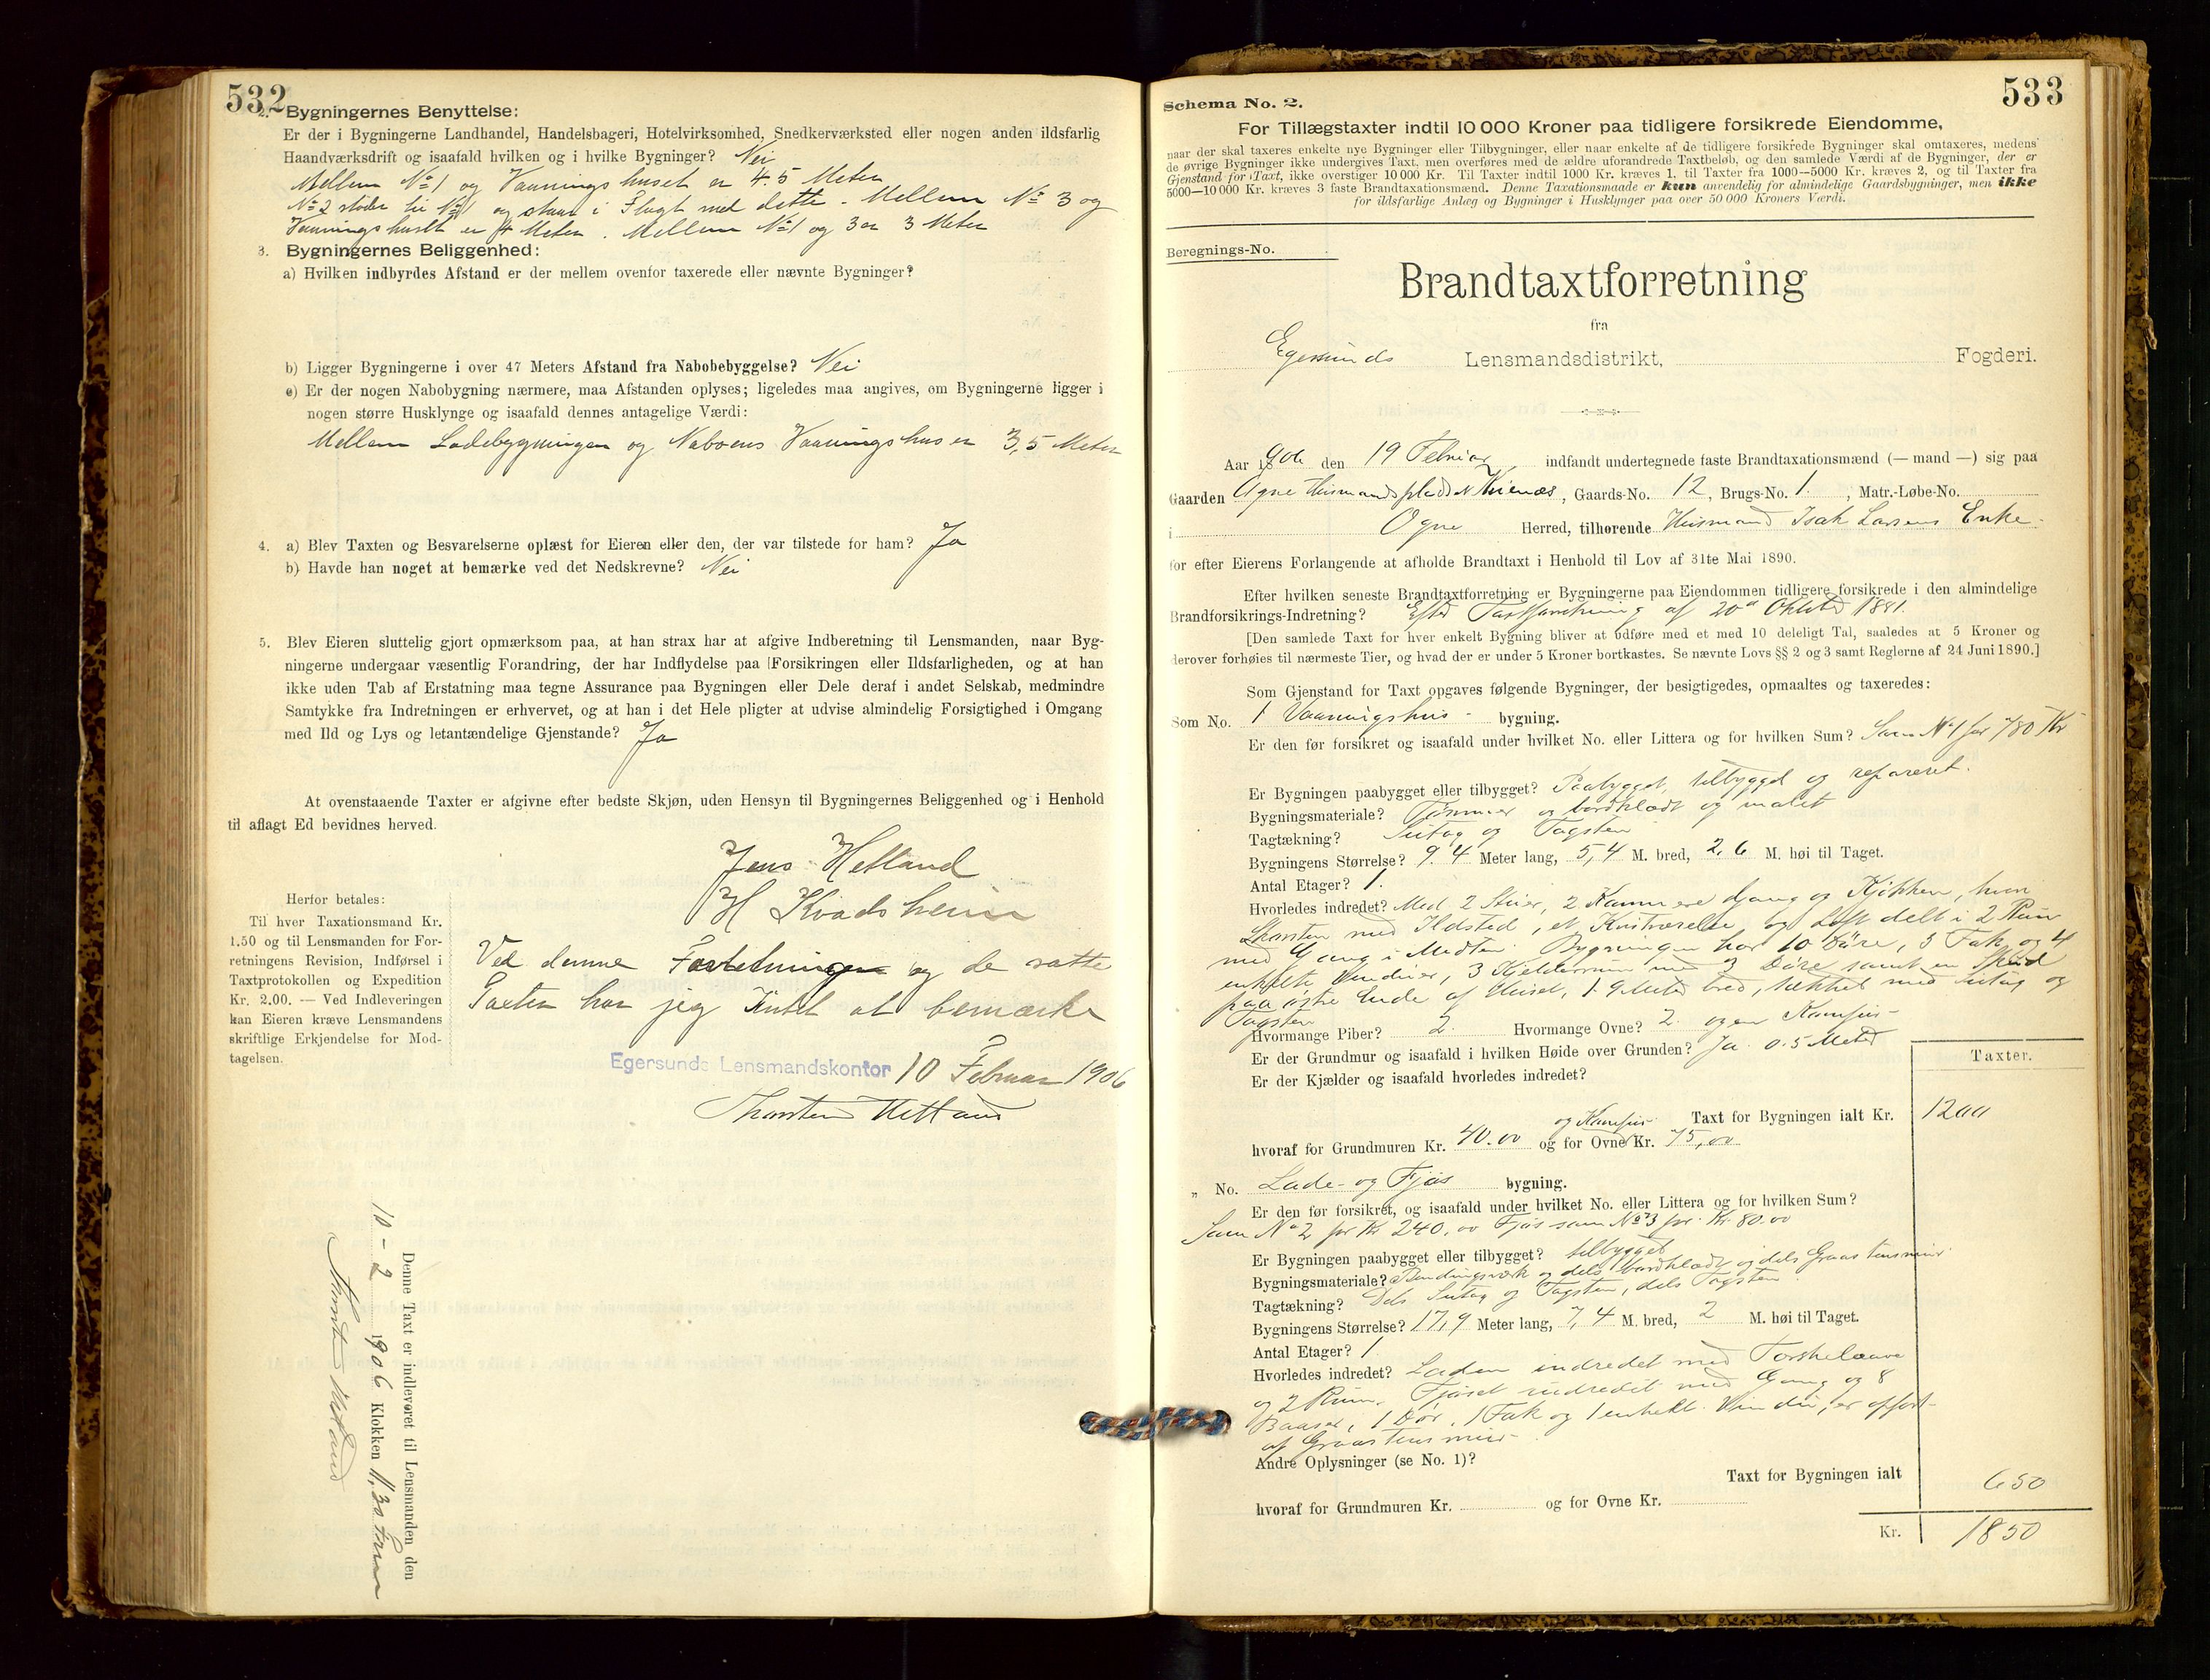 532
2. Bygningernes Benyttelse:
Er der i Bygningerne Landhandel, Handelsbageri, Hotelvirksomhed, Snedkerværksted eller nogen anden ildsfarlig
Haandværksdrift og isaafald hvilken og i hvilke Bygninger? Nei
Mellem No 1 og Vaaningshuset er 4.5 Meter
No 2 støder til No 1 og staar i Flugt med dette. Mellem No 3 og
Vaaningshuset er 4 Meter. Mellem No 1 og 3 er 3 Meter
3. Bygningernes Beliggenhed:
a) Hvilken indbyrdes Afstand er der mellem ovenfor taxerede eller nævnte Bygninger?
b) Ligger Bygningerne i over 47 Meters Afstand fra Nabobebyggelse? Nei
c) Er der nogen Nabobygning nærmere, maa Afstanden oplyses; ligeledes maa angives, om Bygningerne ligger i
nogen større Husklynge og isaafald dennes antagelige Værdi:
Mellem Ladebygningen og Naboens Vaaningshus er 3,5 Meter
4. a) Blev Taxten og Besvarelserne oplæst for Eieren eller den, der var tilstede for ham? Ja
b) Havde han noget at bemærke ved det Nedskrevne? Nei
5. Blev Eieren sluttelig gjort opmærksom paa, at han strax har at afgive Indberetning til Lensmanden, naar Byg-
ningerne undergaar væsentlig Forandring, der har Indflydelse paa Forsikringen eller Ildsfarligheden, og at han
ikke uden Tab af Erstatning maa tegne Assurance paa Bygningen eller Dele deraf i andet Selskab, medmindre
Samtykke fra Indretningen er erhvervet, og at han i det Hele pligter at udvise almindelig Forsigtighed i Omgang
med Ild og Lys og letantændelige Gjenstande? Ja
At ovenstaaende Taxter er afgivne efter bedste Skjøn, uden Hensyn til Bygningernes Beliggenhed og i Henhold
til aflagt Ed bevidnes herved.
Jens Hetland
H Kvadsheim
Herfor betales:
Til hver Taxationsmand Kr.
1.50 og til Lensmanden for For-
retningens Revision, Indførsel i
Taxtprotokollen og Expedition
Kr. 2.00. — Ved Indleveringen
kan Eieren kræve Lensmandens
skriftlige Erkjendelse for Mod-
tagelsen.
Ved denne Forretningen og de satte
Taxter har jeg Intet at bemærke
Egersunds Lensmandskontor 10 Februar 1906
Thorsten Hetland
Denne Taxt er indleveret til Lensmanden den
10 - 2 1906 Klokken 11,30 Form
Thorsten Hetland
533
Schema No. 2.
For Tillægstaxter indtil 10 000 Kroner paa tidligere forsikrede Eiendomme,
naar der skal taxeres enkelte nye Bygninger eller Tilbygninger, eller naar enkelte af de tidligere forsikrede Bygninger skal omtaxeres, medens
de øvrige Bygninger ikke undergives Taxt, men overføres med de ældre uforandrede Taxtbeløb, og den samlede Værdi af de Bygninger, der er
Gjenstand for Taxt, ikke overstiger 10 000 Kr. Til Taxter indtil 1000 Kr. kræves 1, til Taxter fra 1000—5000 Kr. kræves 2, og til Taxter fra
5000—10 000 Kr. kræves 3 faste Brandtaxationsmænd. Denne Taxationsmaade er kun anvendelig for almindelige Gaardsbygninger, men ikke
for ildsfarlige Anlæg og Bygninger i Husklynger paa over 50 000 Kroners Værdi.
Beregnings-No.
Brandtaxtforretning
fra
Egersunds Lensmandsdistrikt, Fogderi.
Aar 1906 den 19 Februar, indfandt undertegnede faste Brandtaxationsmænd (— mand —) sig paa
Gaarden Ogne Husmandsplads, Gaards-No. 12, Brugs-No. 1., Matr.-Løbe-No.
i Ogne Herred, tilhørende Husmand Isak Larsens Enke
for efter Eierens Forlangende at afholde Brandtaxt i Henhold til Lov af 31te Mai 1890.
Efter hvilken seneste Brandtaxtforretning er Bygningerne paa Eiendommen tidligere forsikrede i den almindelige
Brandforsikrings-Indretning? Efter Taxtforretning af 20de Oktober 1881.
[Den samlede Taxt for hver enkelt Bygning bliver at udføre med et med 10 deleligt Tal, saaledes at 5 Kroner og
derover forhøies til nærmeste Tier, og hvad der er under 5 Kroner bortkastes. Se nævnte Lovs §§ 2 og 3 samt Reglerne af 24 Juni 1890.]
Som Gjenstand for Taxt opgaves følgende Bygninger, der besigtigedes, opmaaltes og taxeredes:
Som No. 1 Vaaningshus- bygning.
Er den før forsikret og isaafald under hvilket No. eller Littera og for hvilken Sum? Som No 1 for 780 Kr
Er Bygningen paabygget eller tilbygget? Paabygget, tilbygget og repareret.
Bygningsmateriale? Tømmer og bordklædt og malet
Tagtækning? Sutag og Tagsten
Bygningens Størrelse? 9.4 Meter lang, 5,4 M. bred, 2,6 M. høi til Taget.
Antal Etager? 1.
Hvorledes indredet? Med 2 Stuer, 2 Kammere, Gang og Kjøkken, hvori
Skorsten med Ildsted, et og Loft delt i 2 Rum
med Gang i Midten. Bygningen har 10 Døre, 3 Fak og 4
enkelte Vinduer, 3 Kjelderrum med 3 Døre samt en Skud
paa østre Ende af Huset, 1.9 Meter bred, tækket med Sutag og
Tagsten
Hvormange Piber? 2. Hvormange Ovne? 2 og en Komfur-
Er der Grundmur og isaafald i hvilken Høide over Grunden? Ja 0.5 Meter
Er der Kjælder og isaafald hvorledes indredet?
Taxter.
Taxt for Bygningen ialt Kr. 1200
hvoraf for Grundmuren Kr. 40.00 og for Ovne og Komfur Kr. 75,00
„ No. Lade- og Fjøs bygning.
Er den før forsikret, og isaafald under hvilket No. eller Littera og for hvilken Sum?
Som No 2 for Kr 240.00 Fjøs som No 3 for Kr. 80.00
Er Bygningen paabygget eller tilbygget? tilbygget
Bygningsmateriale? Bindingsværk og dels bordklædt og dels Graastensmur
Tagtækning? Dels Sutag og Tagsten, dels Tagsten
Bygningens Størrelse? 17,9 Meter lang, 7,4 M. bred, 2 M. høi til Taget.
Antal Etager? 1
Hvorledes indredet? Laden indredet med Torskelaave
og 2 Rum. Fjøset indredet med Gang og 8
Baaser, 1 Dør, 1 Fak og 1 enkelt Vindu, er opført
af Graastensmur
Andre Oplysninger (se No. 1)?
Taxt for Bygningen ialt 650
hvoraf for Grundmuren Kr. og for Ovne Kr.
Kr. 1850